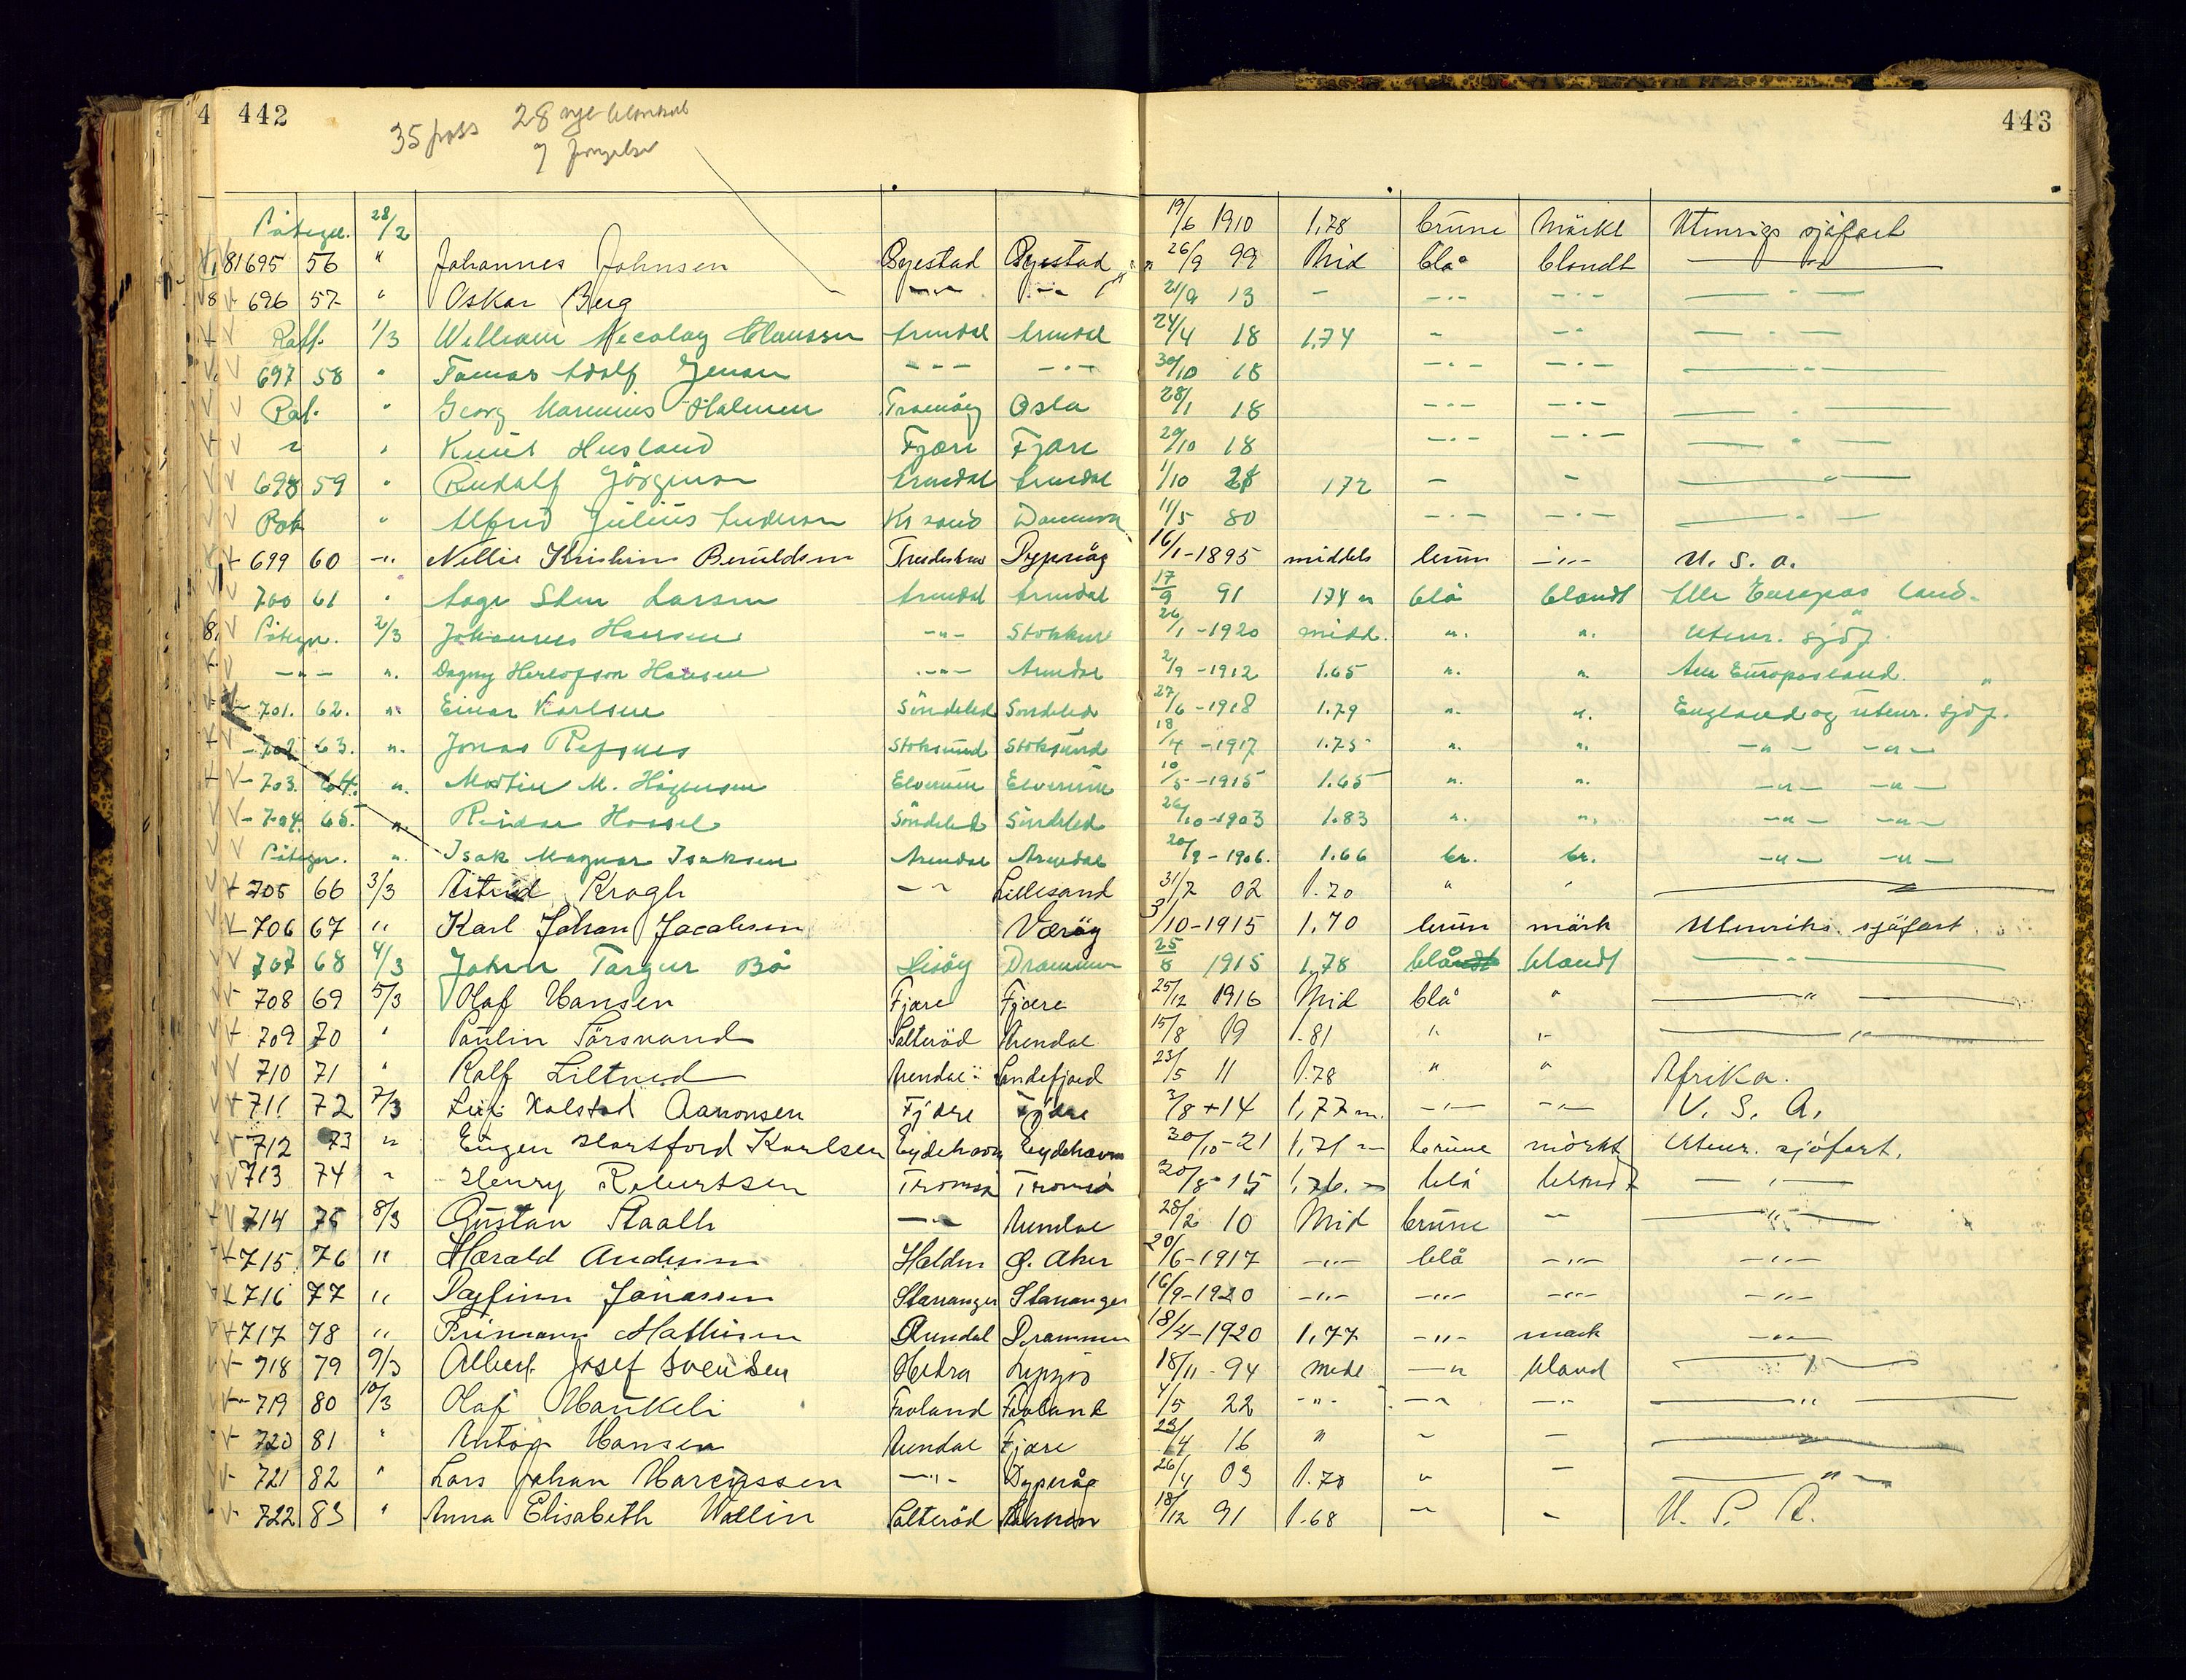 4 442 443
35 pass 28 nye
7
Påtegn. 28/2 19/6 1910 1,78 brune Mörkt Utenrigs sjöfart
81695 56 " Johannes Johnsen Öyestad Öyestad 26/9 99 Mid blå blondt —"—
696 57 " Oskar Berg —"— —"— 21/9 13 - —"— —"— —"—
1/3 William Necolay Claussen Arendal Arendal 24/4 18 1.74 " —"— —"—
697 58 " Tomas Adolf Jensen --- -"- 30/10 18 —"— —"— —"—
" Georg Marinius Halvorsen Tromöy Oslo 28/1 18 —"— —"— —"—
" " Knut Husland Fjære Fjære 29/10 18 —"— —"— —"—
698 59 " Rudolf Jörgensen Arendal Arendal 1/10 21 172 - - —"—
" Alfred Julius Andersen Kr sand Danmark 11/5 80 —"— —"— —"—
699 60 -"- Nellie Kristine Berntdsen Tvedestrand Dypvåg 16/1-1895 middels brun -"- U. S. a.
700 61 " Aage Sten Larsen Arendal Arendal 17/9 91 174 m blå blondt Alle Europas land.
Påtegn. 2/3 Johannes Hansen -"- Stokken 26/1 -1920 midd. ". ". Utenr. sjöf.
-"- ". Dagny Herlofson Hansen -"- Arendal 2/9 -1912 1.65 ". ". Alle Europas land. "
701. 62. ". Einar Karlsen Söndeled Söndeled 27/6 -1918 1.79 ". ". England og utenr. sjöf.
702 63. ". Jonas Refsnes Stoksund Stoksund 18/4 -1917 1.75 ". ". -"- -"-
703. 64. ". Martin M. Hågensen Elverum Elverum 10/5 -1915 1.65 ". ". -"- -"-
704. 65. ". Reidar Hossel Söndeled Söndeled 26/10-1903 1.83 ". ". -"- -"-
Påtegn. ". Isak Magnar Isaksen Arendal Arendal 20/9 -1906. 1.66 br. br. -"- -"-
705 66 3/3 Astrid Krogh -"- Lillesand 31/7 02 1.70 " " —"—
706 67 " Karl Johan Jacobsen Værøy 3/10-1915 1,70 brun mörk Utenriks sjöfart
707 68 4/3 Johan Targer Bö Hisöy Drammen 25/8 1915 1,78 blåndt blondt —"—
708 69 5/3 Olaf Hansen Fjære Fjære 25/12 1916 Mid blå " —"—
709 70 " Paulin Törsvand Salteröd Arendal 15/8 19 1.81 " " —"—
710 71 " Rolf Liltved Arendal Sandefjord 23/5 11 1.78 " " Afrika.
711 72 7/3 Leif Kalstad Aanonsen Fjære Fjære 3/8 +14 1,77 m. -"- -"- U. S. A.
712 73 " Eugen Hartsford Karlsen Eydehavn Eydehavn 30/10-21 1,71 m brune mörkt Utenr. sjöfart.
713 74 " Henry Robertsen Tromsö Tromsö 20/8-15 1,76. " blå blondt —"—
714 75 8/3 Gustav Staalh —"— Arendal 28/2 10 Mid brune - —"—
715 76 " Harald Andersen Halden Ø. Aker 20/6-1917 -"- blå -"- -"-
716 77 " Dagfinn Jonassen Stavanger Stavanger 16/9-1920 -"- -"- -"- -"-
717 78 " Primann Mathisen Arendal Drammen 18/4-1920 1,77 -"- mörk -"-
718 79 9/3 Albert Josef Svendsen Hidra 18/11-94 midd -"- blond —"—
719 80 10/3 Olaf Haukeli Froland Froland 4/5 22 -"- -"- -"- —"—
720 81 " Anton Hansen Arendal Fjære 23/4 16 " " - —"—
721 82 " Lars Johan Marcussen —"— Dypvåg 26/4 03 1.70 " - —"—
722 83 " Anna Elisabeth Wallin Salteröd 18/12 91 1.68 " - U. S. A.